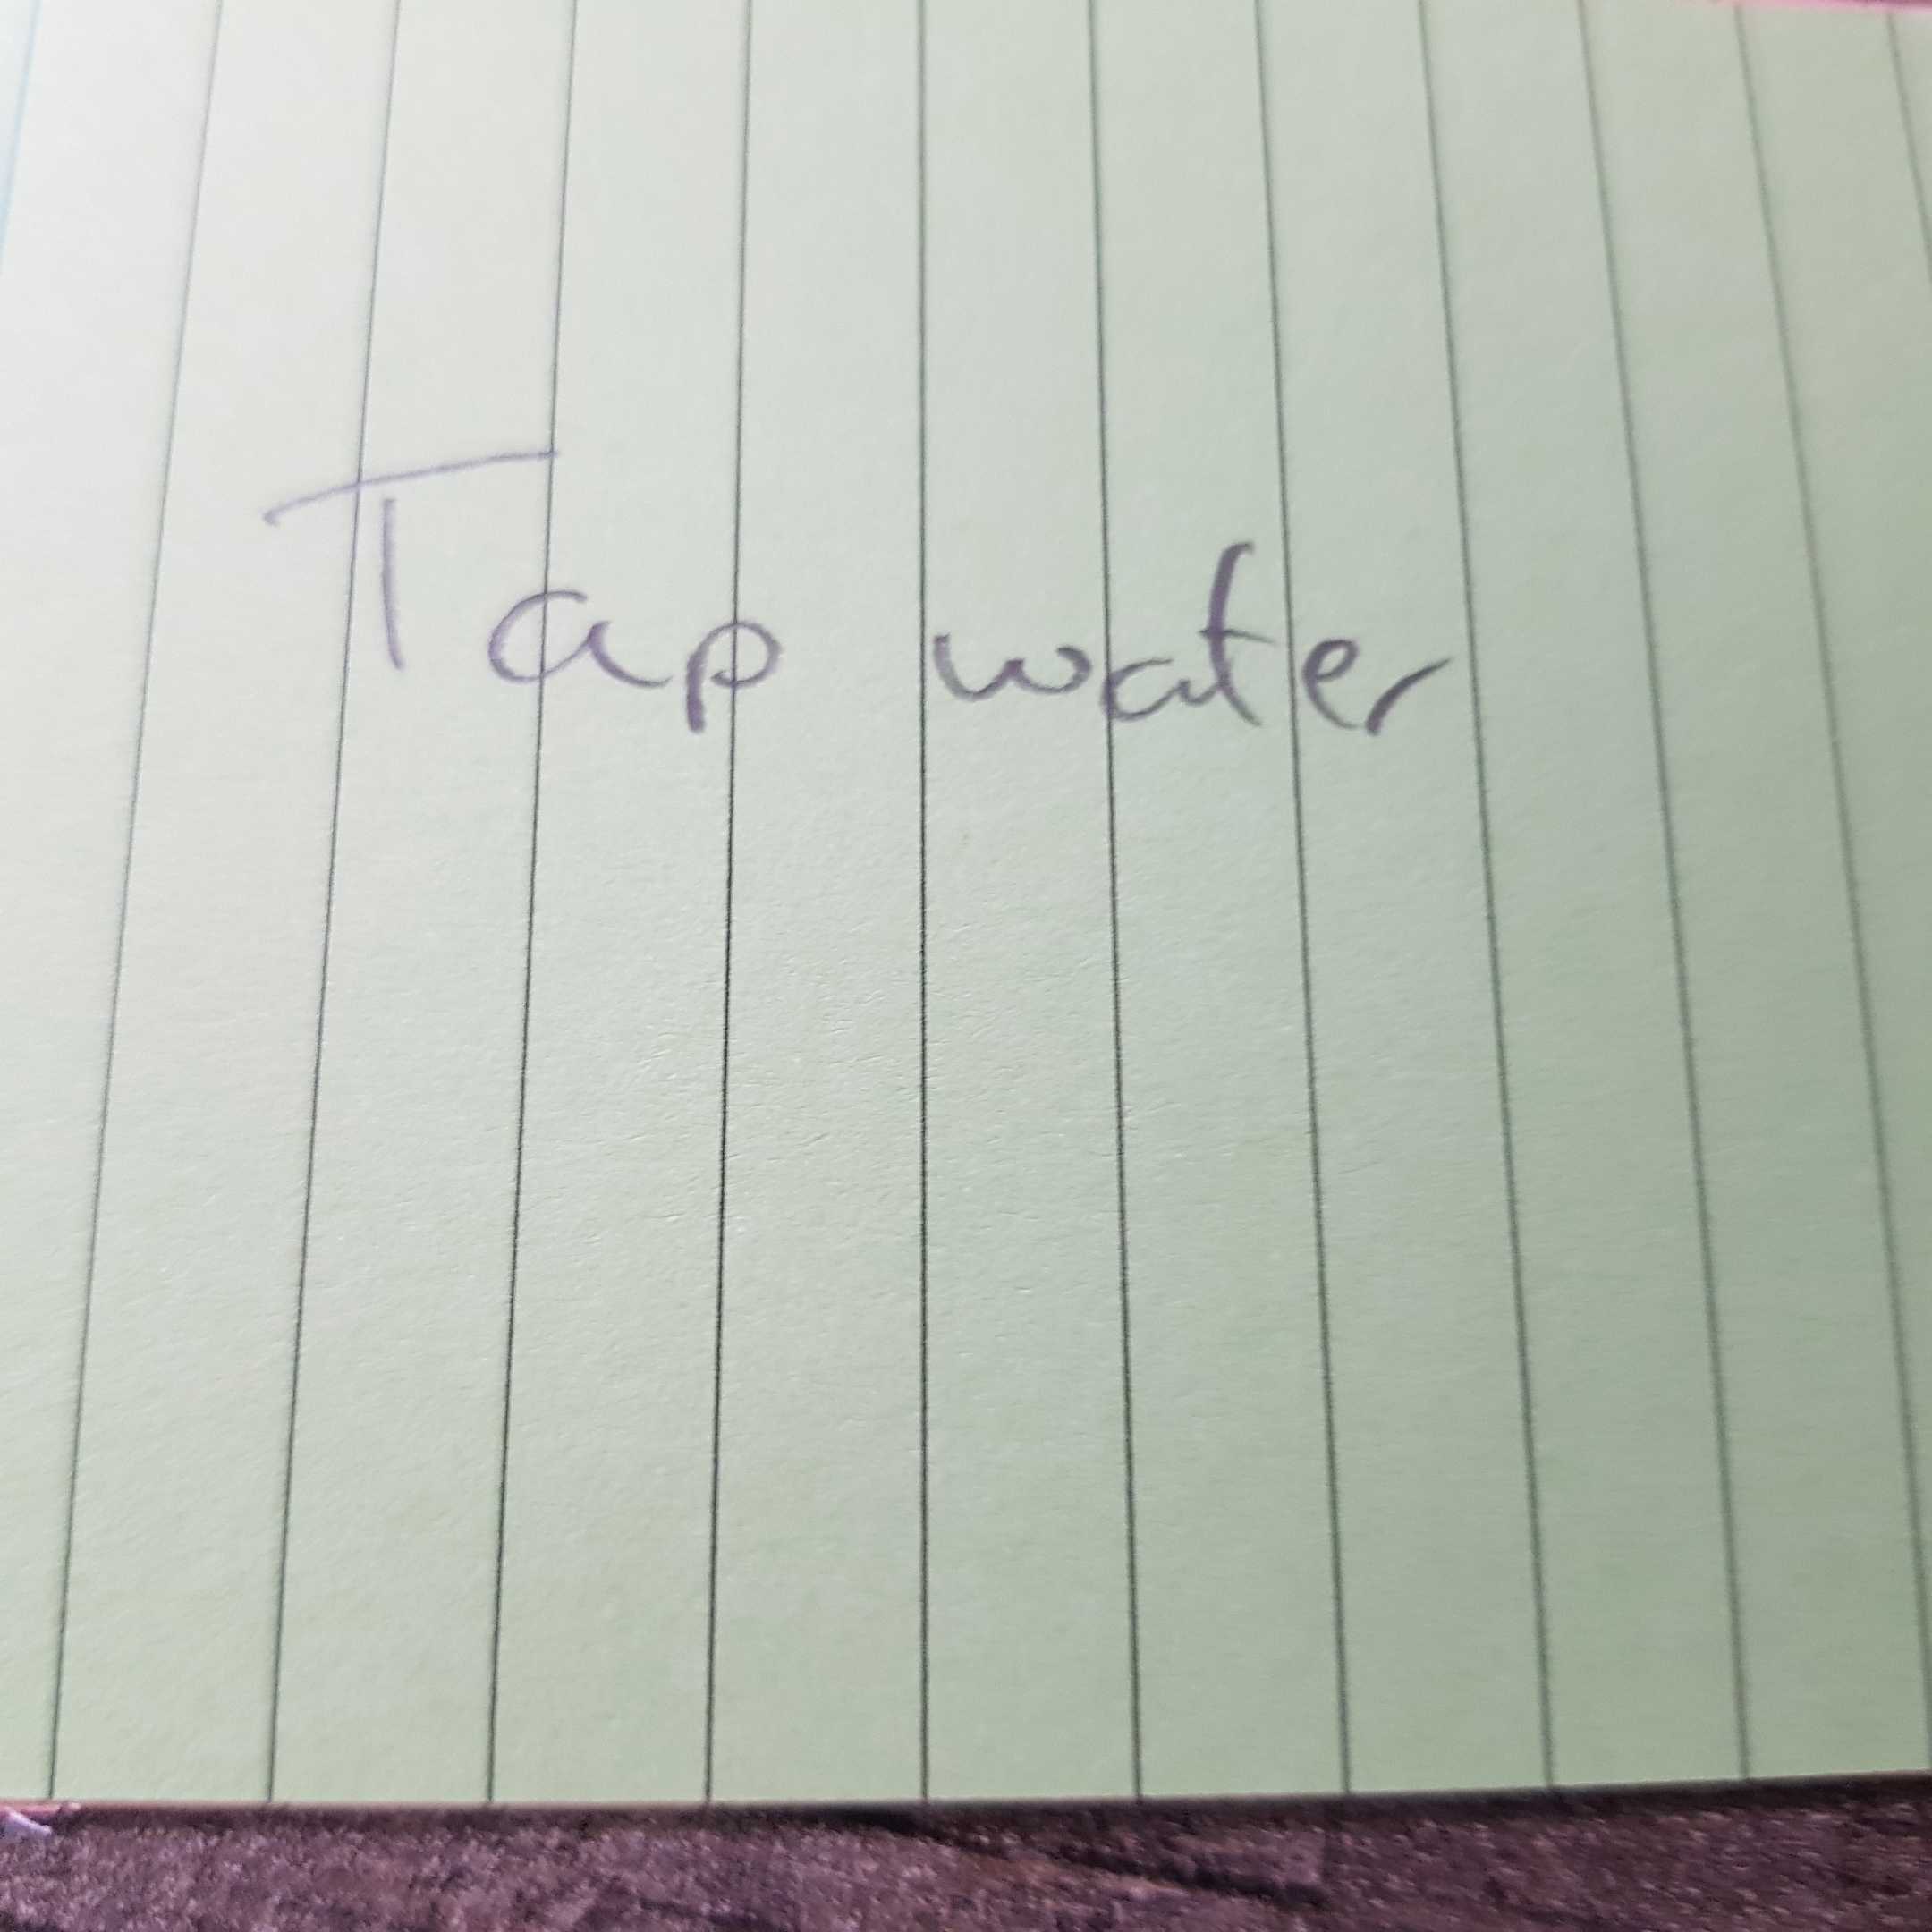 Tap water